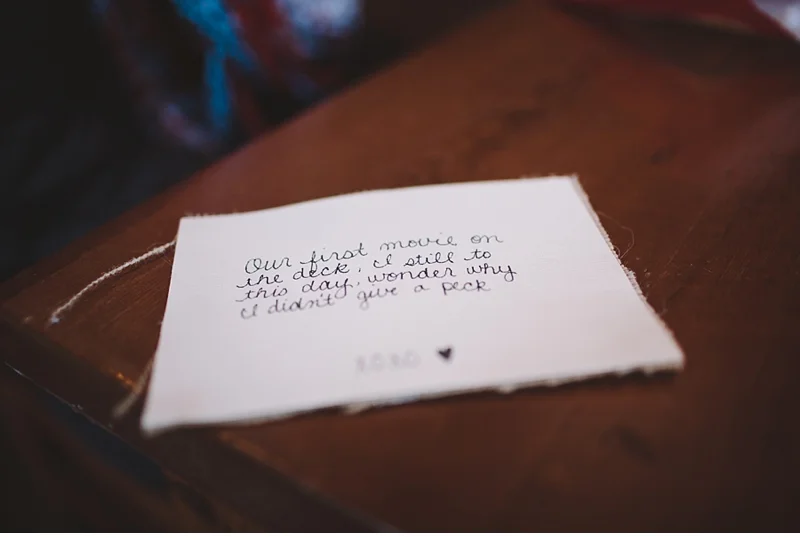 Our first movie on
the deck, I still to
this day, wonder why
I didn't give a peck